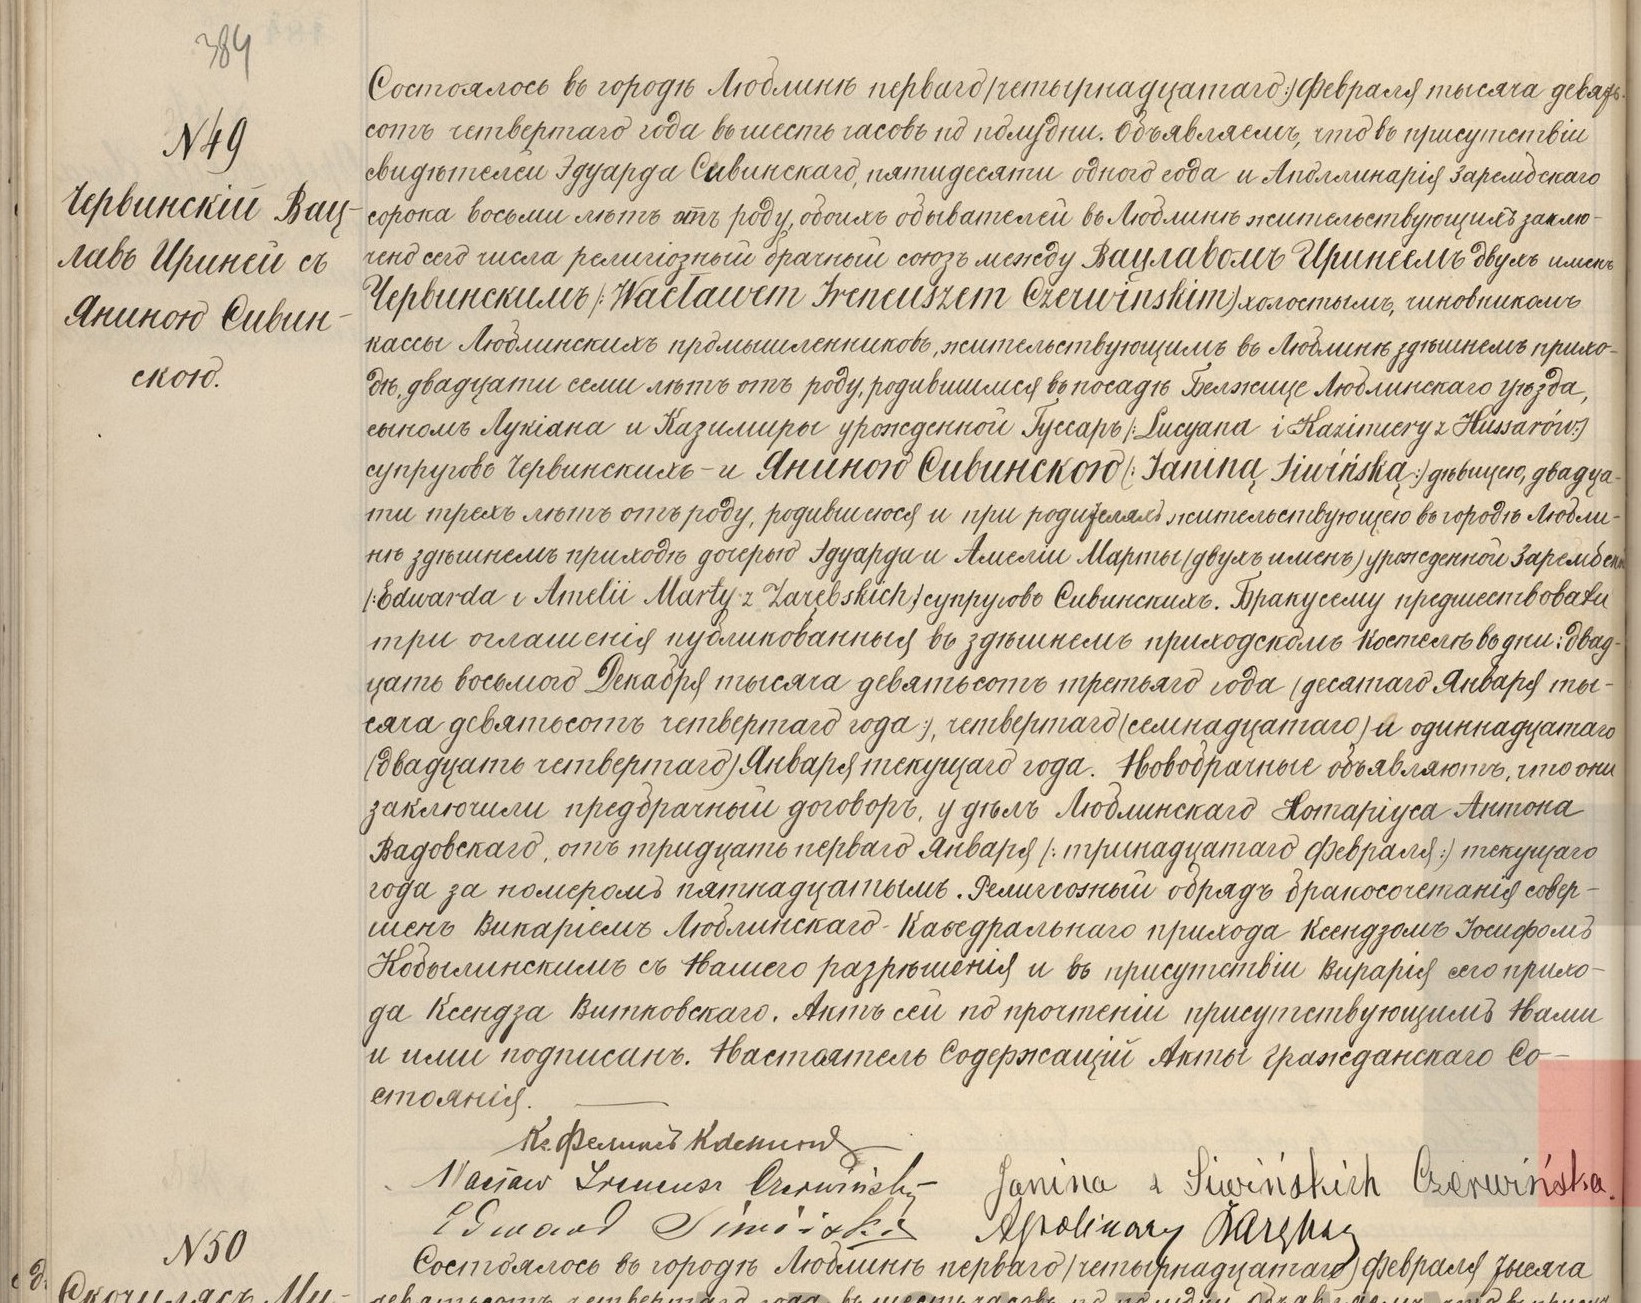 384
N49
Червинскій Вац-
лавъ Ириней съ
Яниною Сивин-
скою.
Состоялось въ городѣ Люблинѣ перваго /четырнадцатаго:/ Февраля тысяча девять-
сотъ четвертаго года въ шесть часовъ по полудни. Объявляемъ, что въ присутствіи
свидѣтелей Эдуарда Сивинскаго, пятидесяти одного года и Аполлинарія Зарембскаго
сорока восьми лѣтъ отъ роду, обоихъ обывателей въ Люблинѣ жительствующихъ заклю-
чено сего числа религіозный брачный союзъ между Вацлавомъ Иринеемъ двухъ именъ
Червинскимъ /:Wacławem Ireneuszem Czerwińskim/ холостымъ, чиновникомъ
кассы Люблинскихъ промышленниковъ, жительствующимъ въ Люблинѣ здѣшнемъ прихо-
дѣ, двадцати семи лѣтъ отъ роду, родившимся въ посадѣ Белжице Люблинскаго уѣзда,
сыномъ Лукіана и Казимиры урожденной Гуссаръ /:Lucyana i Kazimiery z Hussarów:/
супруговъ Червинскихъ – и Яниною Сивинскою /: Janiną Siwińską :/ дѣвицею, двадца-
ти трехъ лѣтъ отъ роду, родившеюся и при родителяхъ жительствующею въ городѣ Любли-
нѣ здѣшнемъ приходѣ дочерью Эдуарда и Амеліи Марты /двухъ именъ/ урожденной Зарембской
/:Edwarda i Amelii Marty z Zarębskich/ супруговъ Сивинскихъ. Браку сему предшествовали
три оглашенія публикованныя въ здѣшнемъ приходскомъ Костелѣ въ дни: двад-
цать восьмого Декабря тысяча девятьсотъ третьяго года /десятаго Января ты-
сяча девятьсотъ четвертаго года:/, четвертаго /семнадцатаго/ и одиннадцатаго
/двадцать четвертаго/ Января текущаго года. Новобрачные объявляютъ, что они
заключили предбрачный договоръ, у дѣлъ Люблинскаго Нотаріуса Антона
Вадовскаго, отъ тридцать перваго Января /: тринадцатаго Февраля :/ текущаго
года за номеромъ пятнадцатымъ. Религіозный обрядъ бракосочетанія совер-
шенъ Викаріемъ Люблинскаго Каѳедральнаго прихода Ксендзомъ Іосифомъ
Кобылинскимъ съ Нашего разрѣшенія и въ присутствіи Викарія сего прихо-
да Ксендза Витковскаго. Актъ сей по прочтеніи присутствующимъ Нами
и ими подписанъ. Настоятель Содержащій Акты Гражданскаго Со-
стоянія.
Кс. Феликсъ
Wacław Ireneusz Czerwiński Janina z Siwińskich Czerwińska.
Edward Siwiński Apolinary Zarębski
N50
Состоялось въ городѣ Люблинѣ перваго /четырнадцатаго/ Февраля тысяча